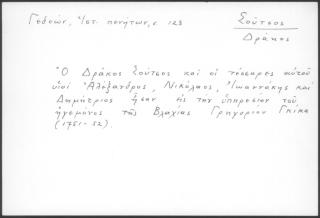 Γεδεών, Ἱστ. πενήτων, σ. 123
Σοῦτσος
Δράκος
Ὁ Δράκος Σοῦτσος καὶ οἱ τέσσαρες αὐτοῦ
υἱοὶ Ἀλέξανδρος, Νικόλαος, Ἰωαννάκης καὶ
Δημήτριος ἦσαν εἰς τὴν ὑπηρεσίαν τοῦ
ἡγεμόνος τῆς Βλαχίας Γρηγορίου Γκίκα
(1751-52).